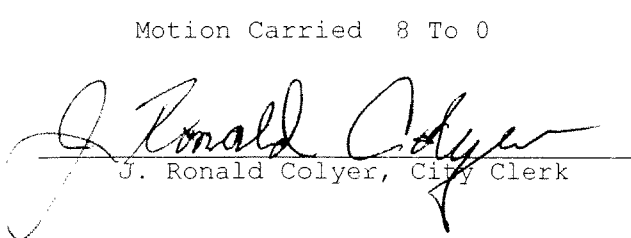 Motion Carried 8 To 0
J Ronald Colyer
J. Ronald Colyer, City Clerk